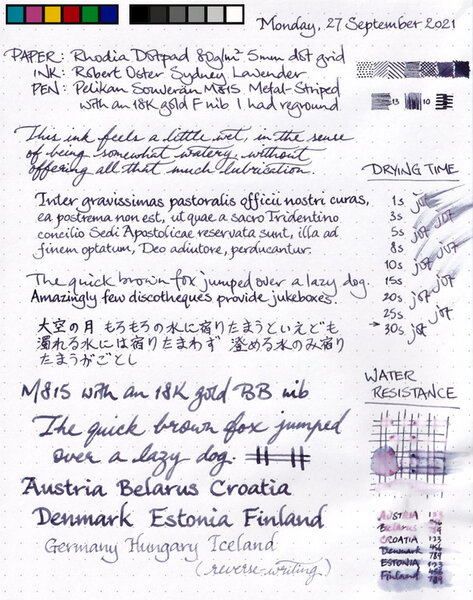 Monday, 27 September 2021
PAPER: Rhodia Dotpad 80g/m² 5mm dot grid
INK: Robert Oster Sydney Lavender
PEN: Pelikan Souverän M815 Metal-Striped
with an 18K gold F nib I had reground
13 10
This ink feels a little wet, in the sense
of being somewhat watery, without
offering all that much lubrication.
Inter gravissimas pastoralis officii nostri curas,
ea postrema non est, ut quae a sacro Tridentino
concilio Sedi Apostolicae reservata sunt, illa ad
finem optatum, Deo adiutore, perducantur.
The quick brown fox jumped over a lazy dog.
Amazingly few discotheques provide jukeboxes.
大空の月 もろもろの水に宿りたまうといえども
濁れる水には宿りたまわず 澄める水のみ宿り
たまうがごとし
DRYING TIME
1s jot
3s
5s jot jot
8s
10s jot jot
15s
20s jot jot
25s
→ 30s jot
M815 with an 18K gold BB nib
The quick brown fox jumped
over a lazy dog.
Austria Belarus Croatia
Denmark Estonia Finland
Germany Hungary Iceland
(reverse-writing)
WATER
RESISTANCE
AUSTRIA 123
Belarus 456
CROATIA 789
Denmark 123
ESTONIA 456
Finland 789